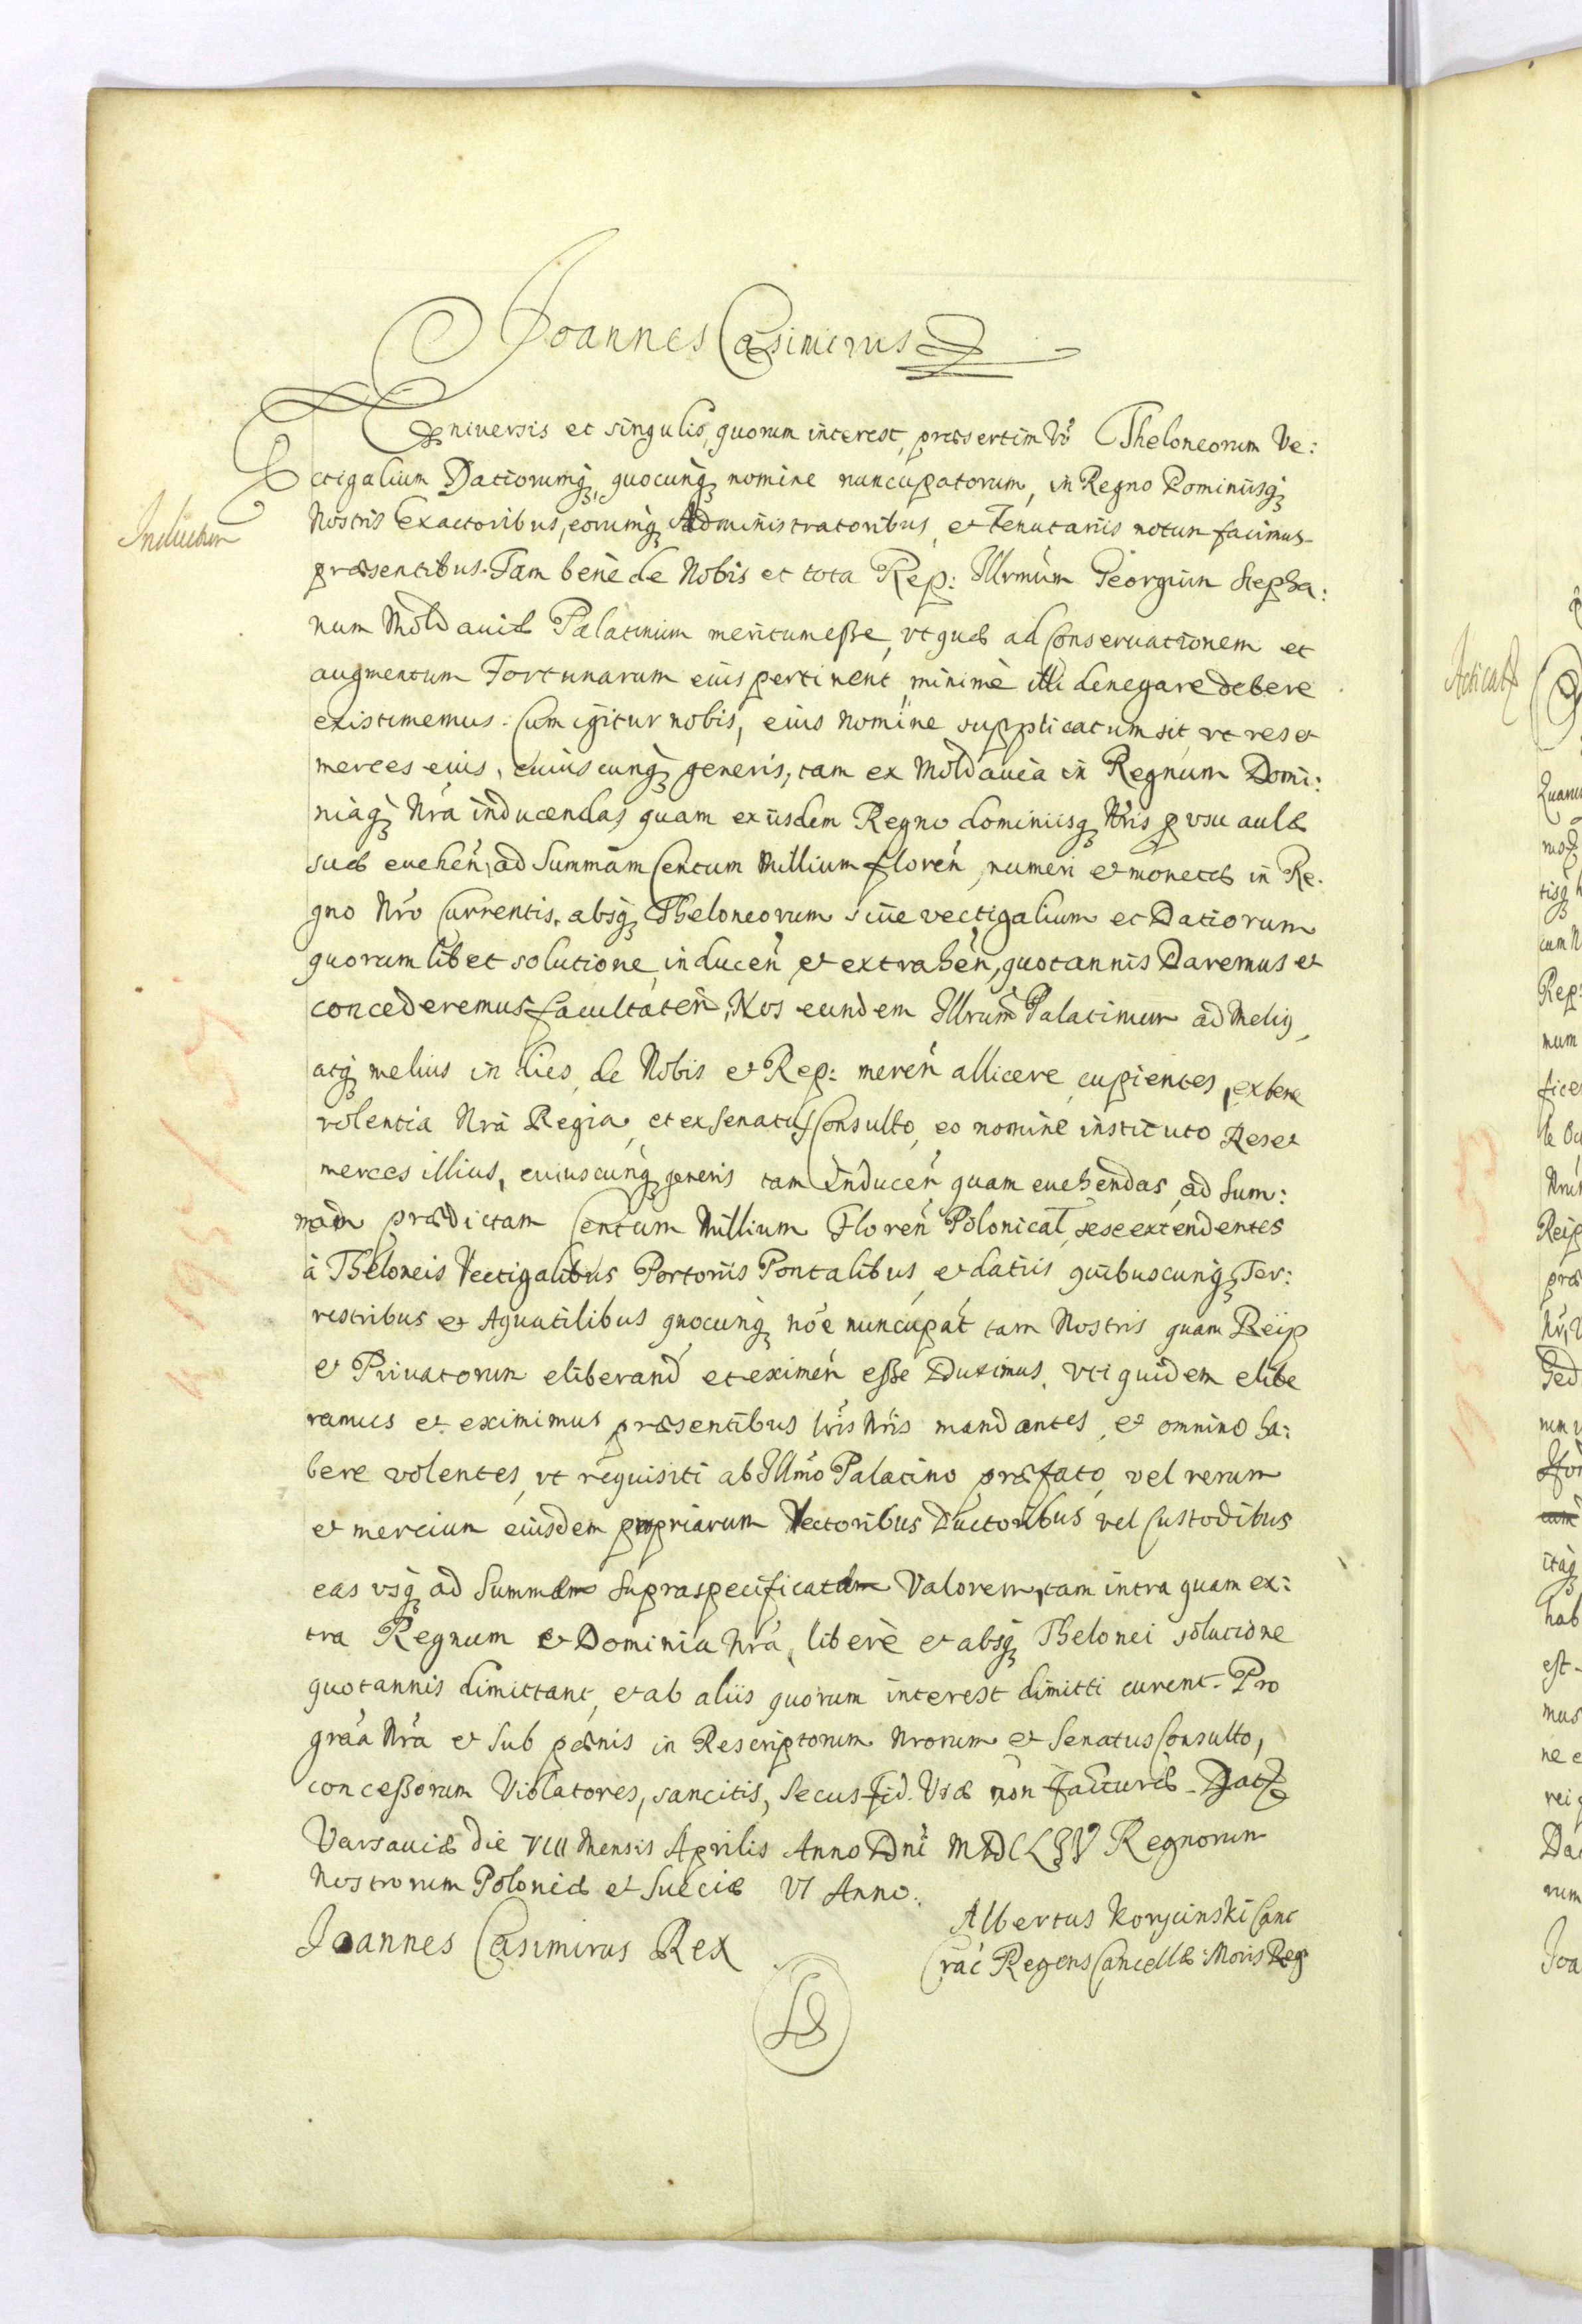 Joannes Casimirus
Vniversis et singulis, quorum interest, præsertim vō Theloneorum Ve:
ctigalium Datiorumq, quocunq nomine nuncupatorum, in Regno Dominiisq
Indultum
Nostris Exactoribus, eorumq Administratoribus, et Tenutariis notum facimus
præsentibus. Tam benè de Nobis et tota Rep: Illrmum Georgium Stepha:
num Moldaviæ Palatinum meritum esse, vt quæ ad Conservationem et
augmentum Fortunarum eius pertinent, minimè illi denegare debere
existimemus. Cum igitur nobis, eius nomine supplicatum sit, vt res et
merces eius, cuiuscunq generis, tam ex Moldavia in Regnum Domi:
niaq Nra inducendas quam ex iisdem Regno dominiisq Nris p vsu aulæ
suæ evehen, ad Summam Centum Millium floren, numeri et monetæ in Re:
gno Nro Currentis, absq Theloneorum sive vectigalium et Datiorum
quorumlibet solutione inducen et extrahen, quotannis Daremus et
concederemus facultatem, Nos eundem Illrum Palatinum ad melius
atq melius in dies de Nobis et Rep: meren allicere cupientes, ex bene
volentia Nra Regia, et ex Senatus Consulto, eo nomine instituto Res et
merces illius, cuiuscunq generis tam inducen quam evehendas, ad Sum:
mam prædictam Centum Millium Floren Polonical, sese extendentes
à Theloneis Vectigalibus Portoriis Pontalibus, et datiis quibuscunq Ter:
restribus et Aquatilibus quocunq noe nuncupat tam Nostris quam Reip
et Privatorum eliberand et eximen esse Duximus. Vti quidem elibe
ramus et eximimus præsentibus lris Nris mandantes, et omnino ha:
bere volentes, vt requisiti ab Illmo Palatino præfato, vel rerum
et mercium eiusdem propriarum Vectoribus Ductoribus vel Custodibus
eas vsq ad Summam supraspecificatam Valorem, tam intra quam ex:
tra Regnum et Dominia Nra, liberè et absq Thelonei solutione
quotannis dimittant, et ab aliis quorum interest dimitti curent. Pro
graa Nra et Sub pænis in Rescriptorum Nrorum et Senatus Consulto,
concessorum Violatores, sancitis, Secus Fid. Vræ non facturæ. Dat
Varsaviæ die VIII Mensis Aprilis Anno Dni MDCLIV Regnorum
Nostrorum Poloniæ et Sueciæ VI Anno.
Joannes Casimirus Rex
Albertus Koryciński Canc
Crac Regens Cancellæ: Moris Reg
LS